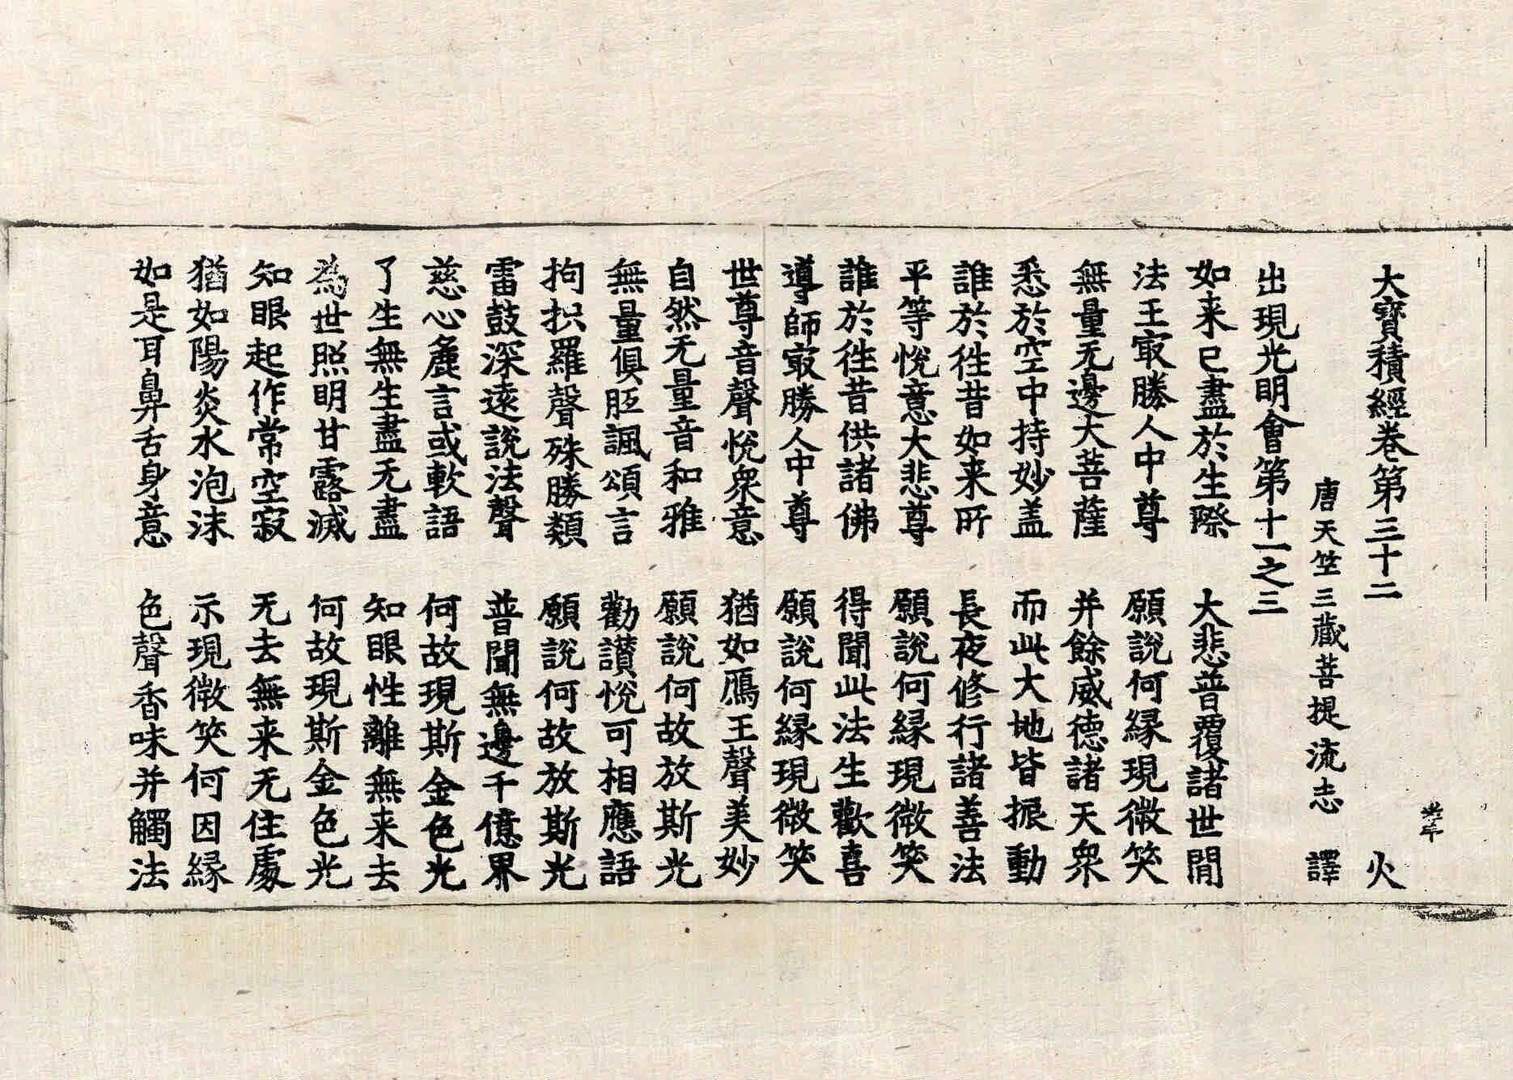 大寶積經卷第三十二 火
唐天竺三藏菩提流志 譯
出現光明會第十一之三
如来已盡於生際 大悲普覆諸世間
法王㝡勝人中尊 願說何緣現微笑
無量无邊大菩薩 并餘威德諸天衆
悉於空中持妙盖 而此大地皆振動
誰於徃昔如来所 長夜修行諸善法
平等悅意大悲尊 願說何緣現微笑
誰於徃昔供諸佛 得聞此法生歡喜
導師㝡勝人中尊 願說何緣現微笑
世尊音聲悅衆意 猶如鴈王聲美妙
自然无量音和雅 願說何故放斯光
無量俱胝諷頌言 勸讃悅可相應語
拘抧羅聲殊勝類 願說何故放斯光
雷鼓深遠說法聲 普聞無邊千億界
慈心麁言或軟語 何故現斯金色光
了生無生盡无盡 知眼性離無来去
為世照明甘露滅 何故現斯金色光
知眼起作常空寂 无去無来无住處
猶如陽炎水泡沫 示現微笑何因緣
如是耳鼻舌身意 色聲香味并觸法